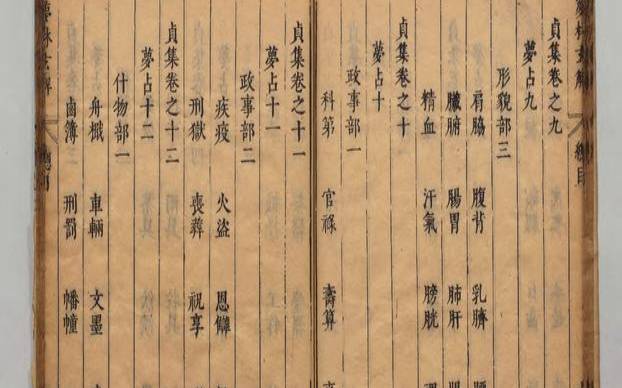 貞集卷之九
夢占九
形貌部三
肩脇 腹背 乳臍
臟腑 腸胃 肺肝
精血 汗氣 膀胱
貞集卷之十
夢占十
政事部一
科第 官祿 壽算
貞集卷之十一
夢占十一
政事部二
疾疫 火盜 恩讎
刑獄 喪葬 祝享
貞集卷之十二
夢占十二
什物部一
舟檝 車輛 文墨
鹵簿 刑罰 幡幢
夢林玄解
總目